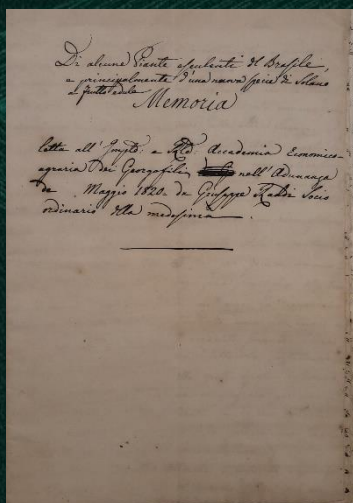 Di alcune Piante esculenti del Brasile,
e principalmente d'una nuova specie di Solano
a frutto edule
Memoria
letta all' Imple: e Rle Accademia Economico-
agraria dei Georgofili nell' Adunanza
de Maggio 1820. da Giuseppe Raddi Socio
ordinario della medesima.